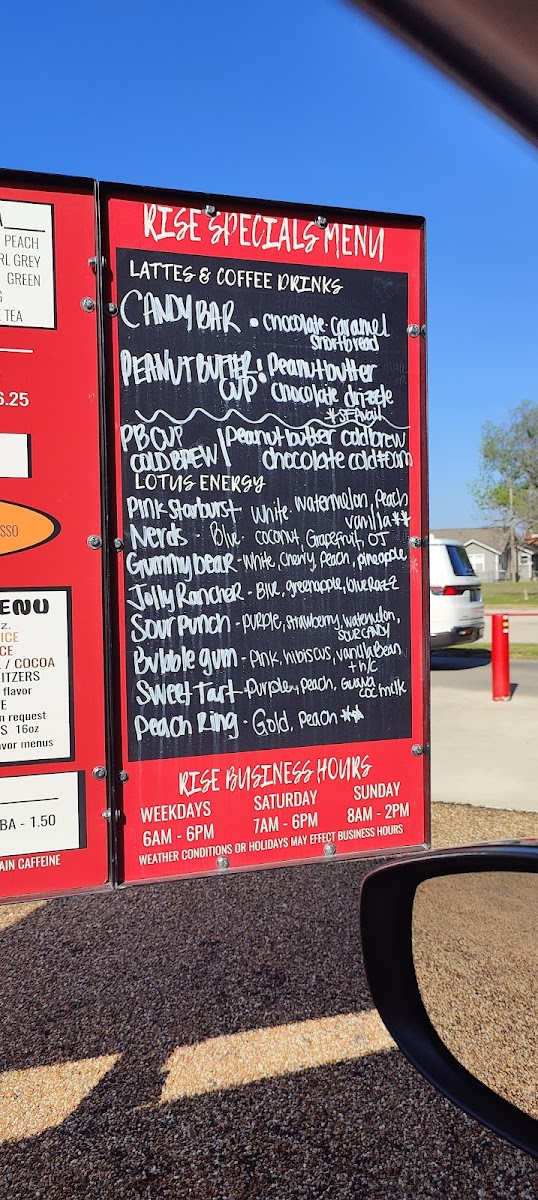 PEACH
RL GREY
GREEN
G
E TEA
6.25
SSO
ENU
Z.
ICE
CE
/ COCOA
ITZERS
flavor
E
n request
S 16oz
vor menus
BA - 1.50
AIN CAFFEINE
RISE SPECIALS MENU
LATTES & COFFEE DRINKS
CANDY BAR • chocolate caramel
shortbread
PEANUT BUTTER : Peanutbutter
CUP chocolate drizzle
*SF Avail
PB CUP / peanut butter coldbrew
COLD BREW chocolate cold foam
LOTUS ENERGY
Pink Starburst - White - Watermelon, Peach
vanilla**
Nerds - Blue - coconut, Grapefruit, OJ
Gummy bear - White, Cherry, Peach, pineapple
Jolly Rancher - Blue, greenapple, blue Razz
Sour Punch - purple, strawberry, watermelon,
SOUR CANDY
Bubble gum - Pink, hibiscus, vanilla Bean
+ h/c
Sweet Tart - Purple, Peach, Guava
coc milk
Peach Ring - Gold, Peach ***
RISE BUSINESS HOURS
WEEKDAYS SATURDAY SUNDAY
6AM - 6PM 7AM - 6PM 8AM - 2PM
WEATHER CONDITIONS OR HOLIDAYS MAY EFFECT BUSINESS HOURS